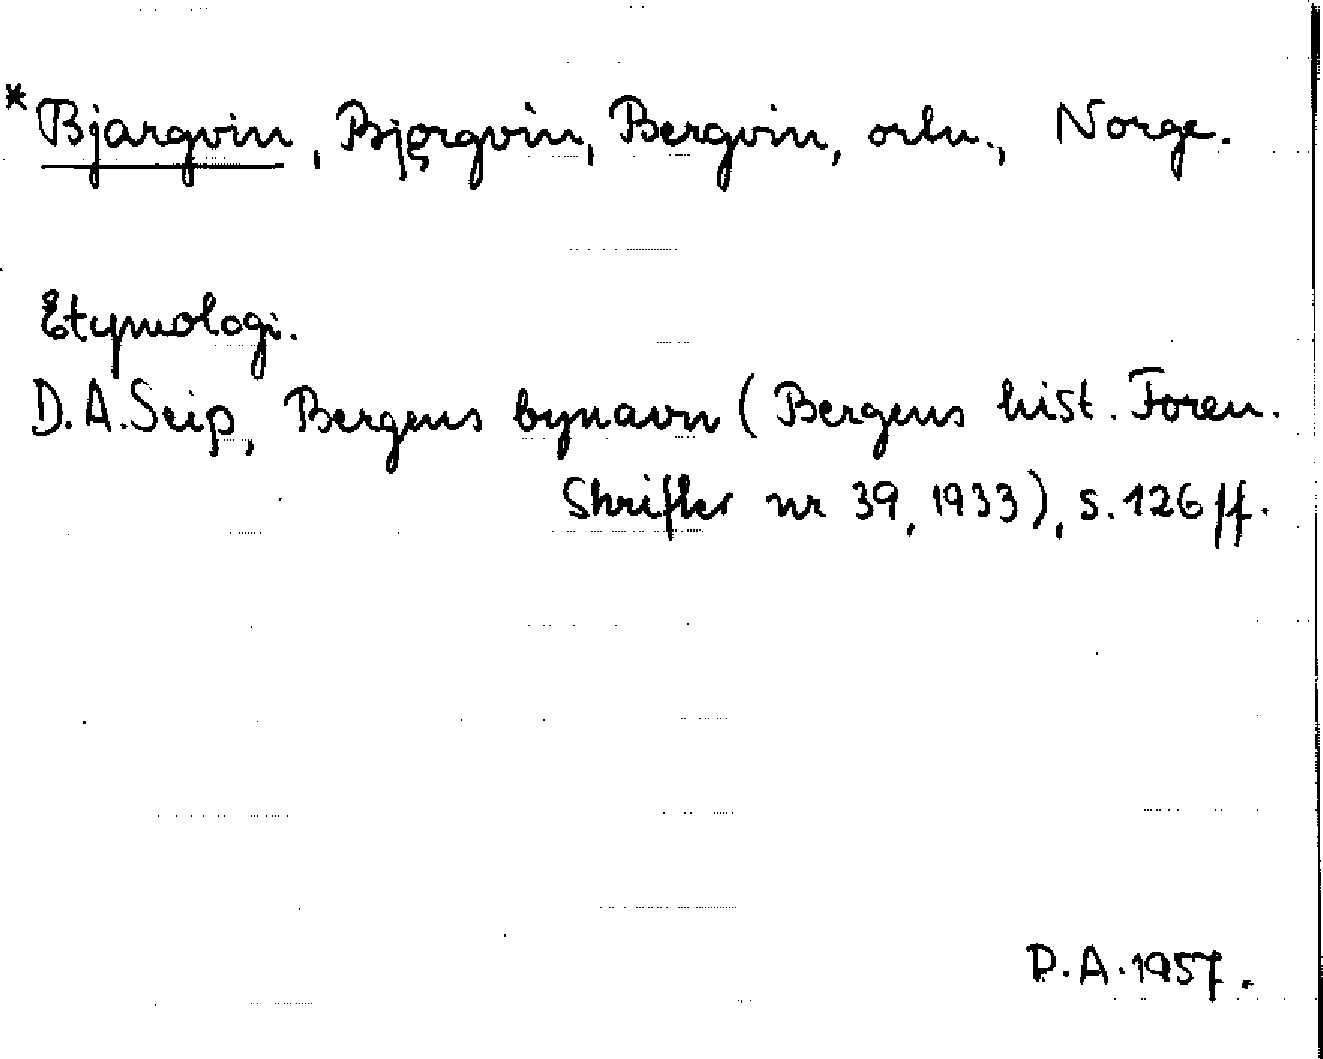 *Bjargvin, Bjǫrgvin, Bergvin, ortn., Norge.
Etymologi.
D.A.Seip, Bergens bynavn (Bergens hist. Foren.
Skrifter nr 39, 1933), s. 126 ff.
D.A. 1957.